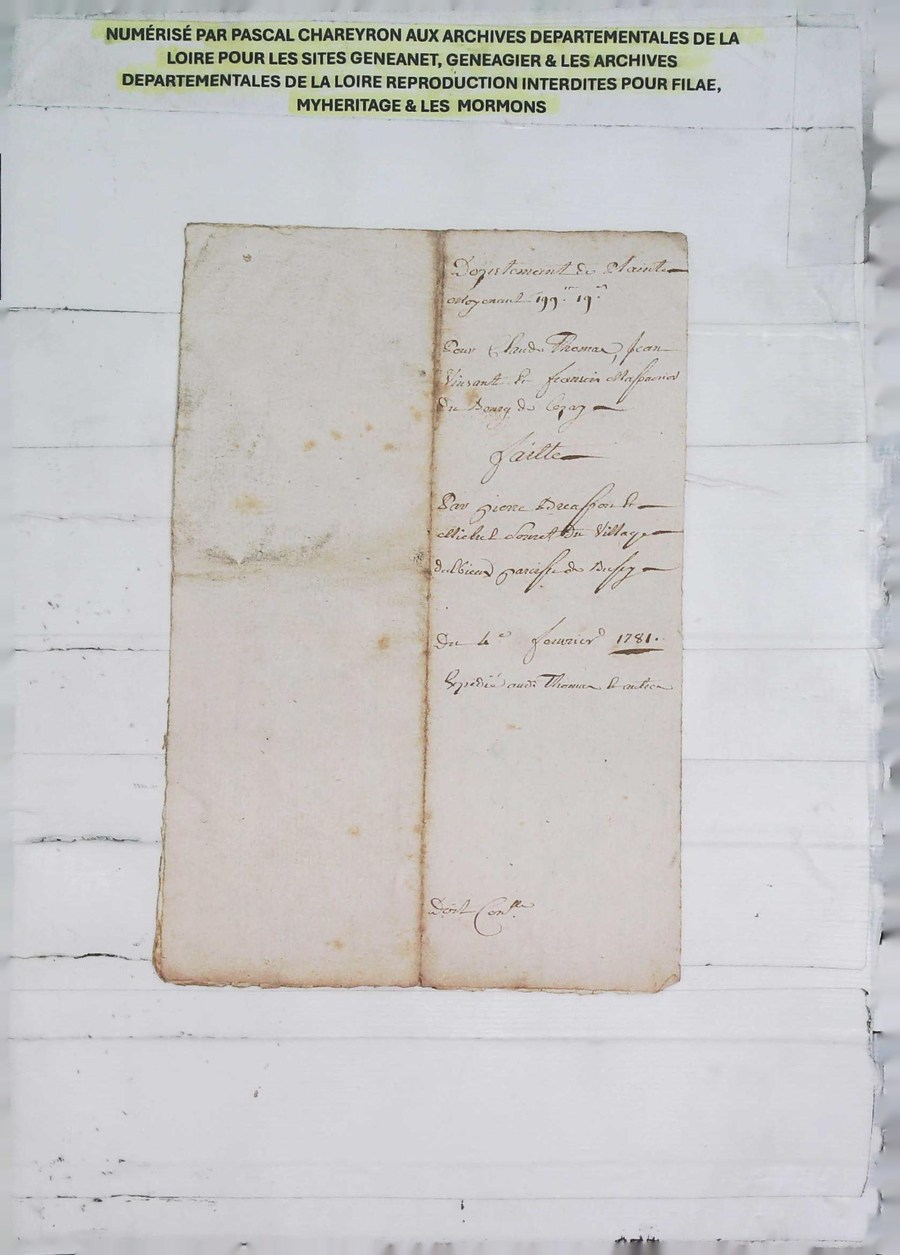 NUMÉRISÉ PAR PASCAL CHAREYRON AUX ARCHIVES DEPARTEMENTALES DE LA
LOIRE POUR LES SITES GENEANET, GENEAGIER & LES ARCHIVES
DEPARTEMENTALES DE LA LOIRE REPRODUCTION INTERDITES POUR FILAE,
MYHERITAGE & LES MORMONS
de Plainte
moyenant 199# 19s
Pour Claude Thomas, Jean
Vinsant et
du Bourg de Cezay
faitte
Par pierre et
Michel du Village
paroisse de Bussy
Du 4e fevrier 1781.
Expedié audt Thomas et autres
Doit Conlle